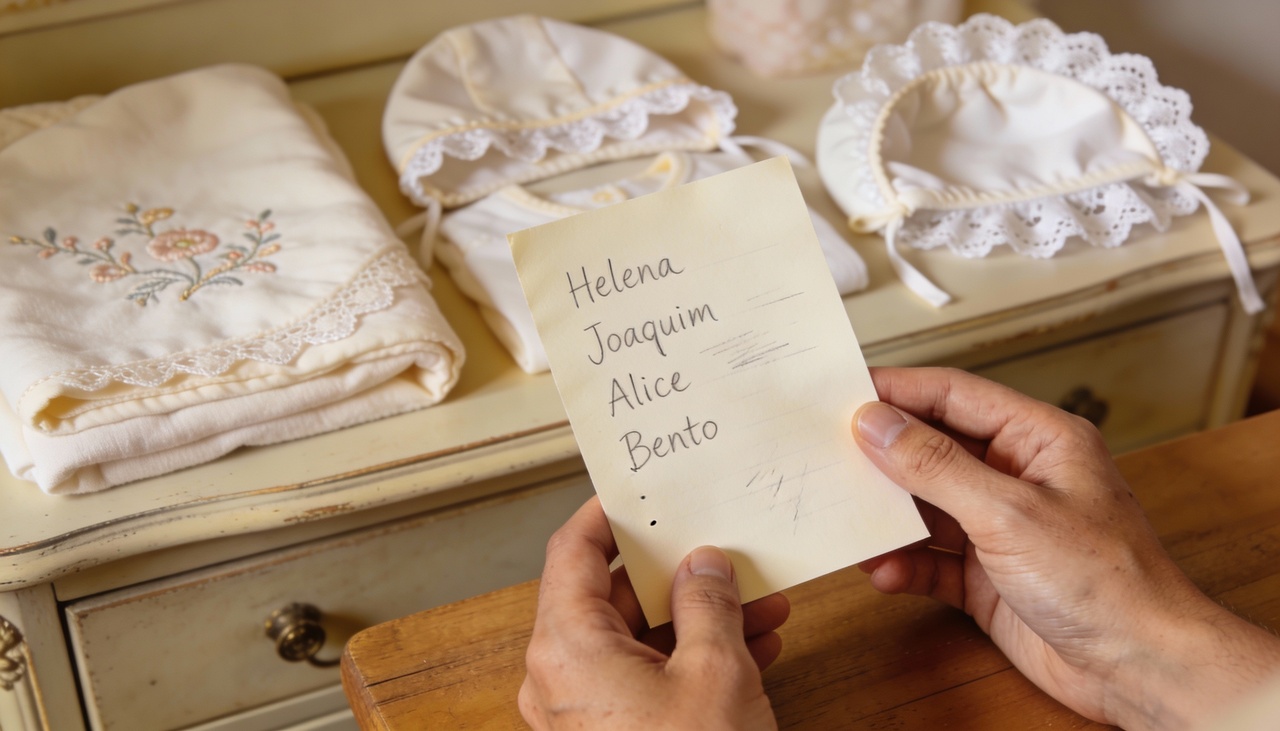 Helena
Joaquim
Alice
Bento